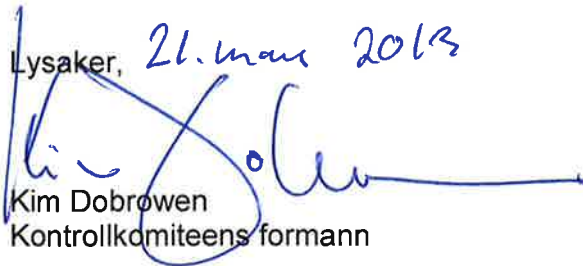 Lysaker, 21. mars 2013
Kim Dobrowen
Kontrollkomiteens formann